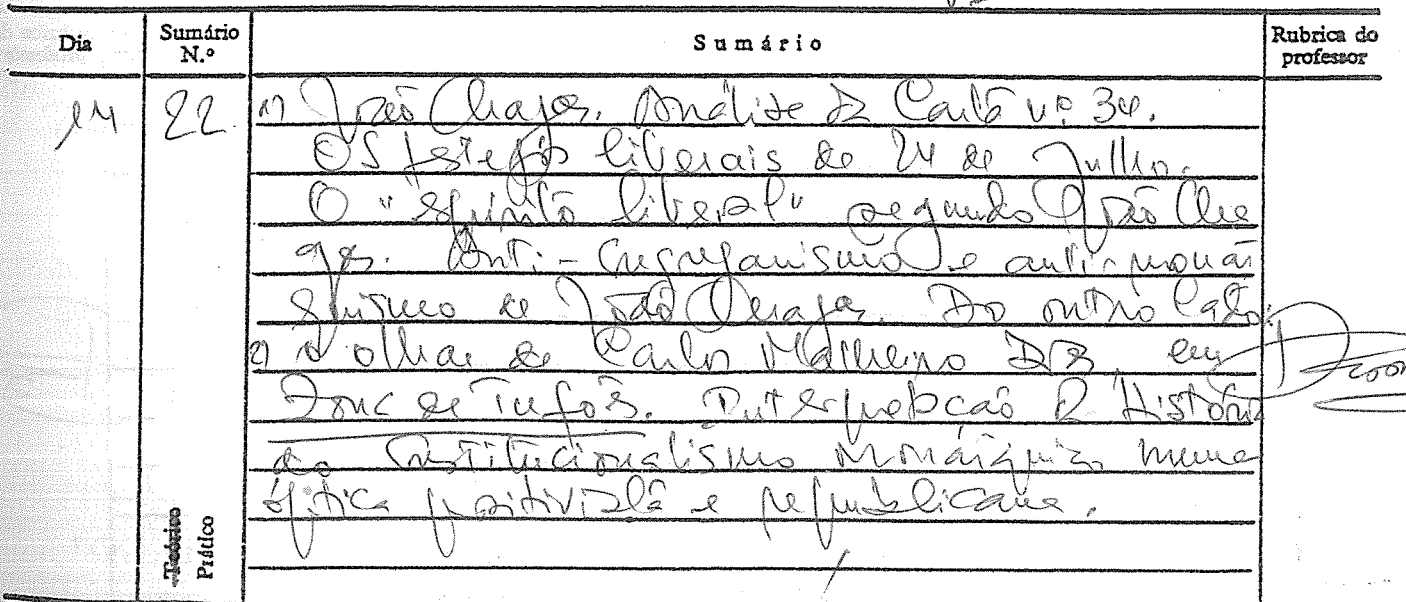 Dia Sumário N.º Sumário Rubrica do professor
14 22 1) João Chagas. Análise da Carta nº 34.
Os festejos liberais de 24 de Julho.
O "espírito liberal" segundo João Cha
gas. Anti-congreganismo e anti-monár
quismo de João Chagas. Do outro lado:
2) o olhar de Carlos Malheiro Dias, em
Zona de Tufões. Interpretação da História
do Constitucionalismo Monárquico numa
óptica positivista e republicana.
Teórico
Prático